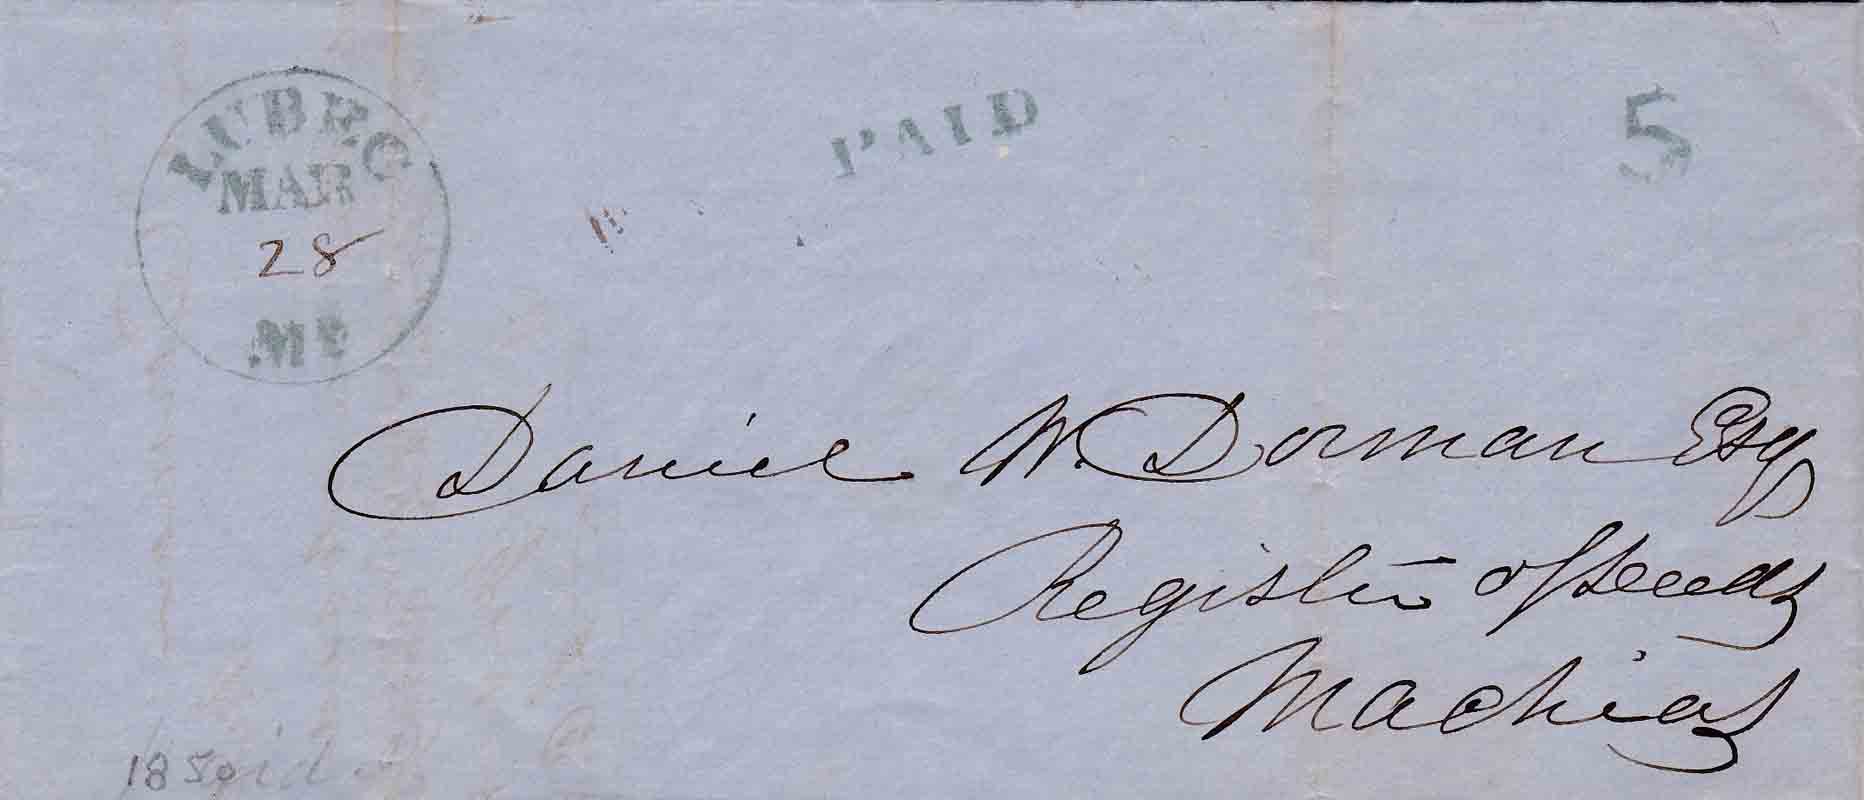 LUBEC
MAR
28
ME
PAID
5
Daniel W. Dorman Esq
Register of Deeds
Machias
1850